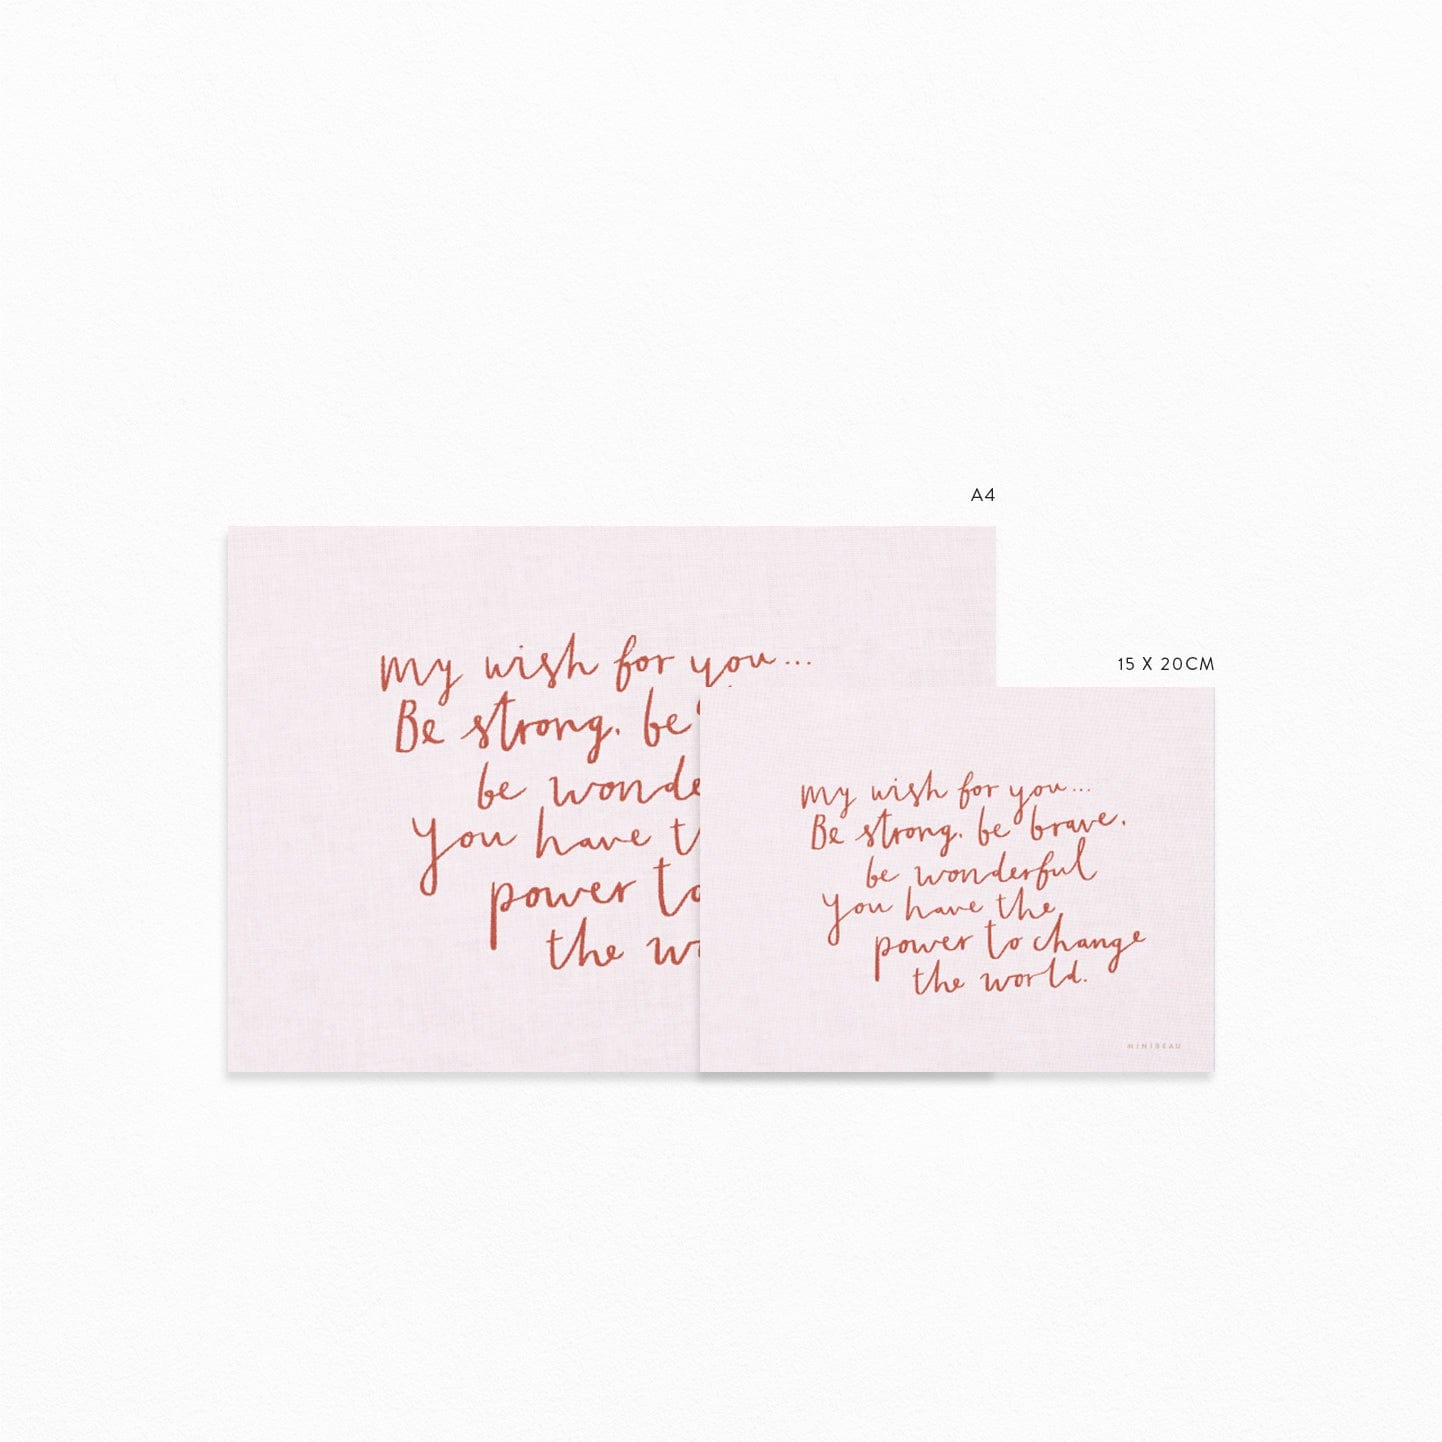 A4
my wish for you...
Be strong, be
be wonde
You have t
power to
the w
15 X 20CM
my wish for you...
Be strong, be brave,
be wonderful
You have the
power to change
the world.
MINIBEAU